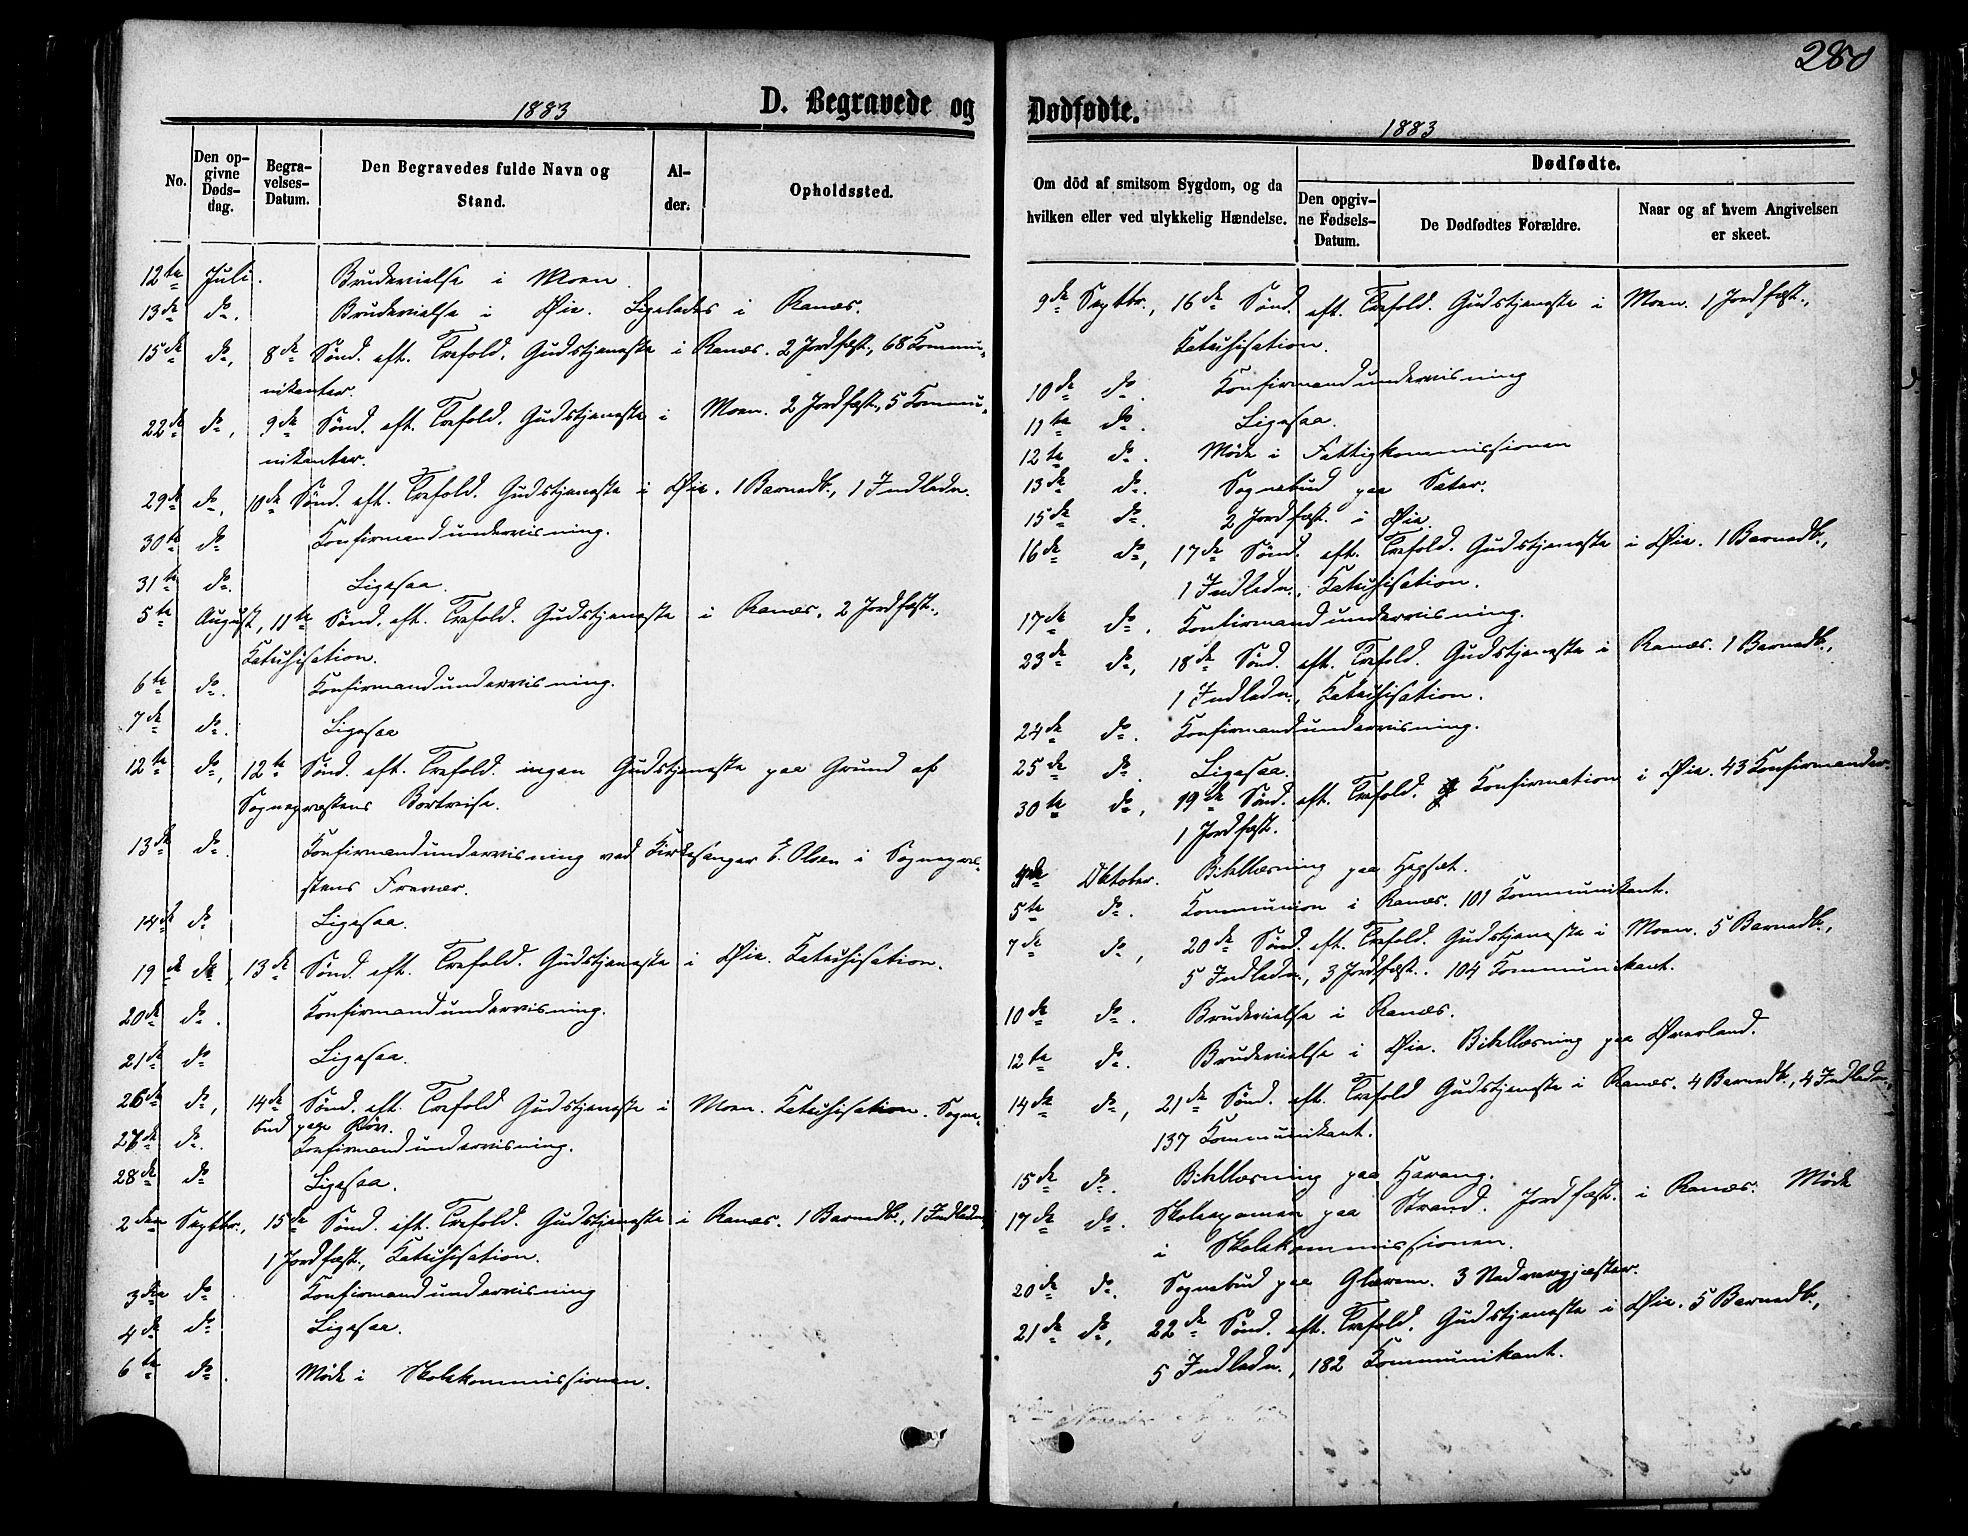 280
1883 D. Begravede og
No.
Den op-
givne
Døds-
dag.
Begra-
velses-
Datum.
Den Begravedes fulde Navn og
Stand.
Al-
der.
Opholdssted.
12te Juli. Brudevielse i Moen.
13de do. Brudevielse i Øie. Ligeledes i Ranæs.
15de do, 8de Sønd. eft. Trefold. Gudstjeneste i Ranæs. 2 Jordfæst., 68 Kommu-
nikanter.
22de do, 9de Sønd. eft. Trefold. Gudstjeneste i Moen. 2 Jordfæst., 5 Kommu-
nikanter.
29de do, 10de Sønd. eft. Trefold. Gudstjeneste i Øie. 1 Barnedb., 1 Indledn.
30te do Konfirmandundervisning.
31te do. Ligesaa.
5te August, 11te Sønd. eft. Trefold. Gudstjeneste i Ranæs. 2 Jordfæst.,
Katechisation.
6te do. Konfirmandundervisning.
7de do. Ligesaa
12te do, 12te Sønd. eft. Trefold. ingen Gudstjeneste paa Grund af
Sognepræstens Bortreise.
13de do. Konfirmandundervisning ved Kirkesanger E. Olsen i Sognepræ-
stens Fravær.
14de do Ligesaa.
19de do, 13de Sønd. eft. Trefold. Gudstjeneste i Øie. Katechisation.
20de do. Konfirmandundervisning.
21de do Ligesaa.
26de do, 14de Sønd. eft. Trefold Gudstjeneste i Moen. Katechisation. Sogne-
bud paa Røv.
27de do. Konfirmandundervisning.
28de do Ligesaa.
2den Septbr., 15de Sønd. eft. Trefold. Gudstjeneste i Ranæs. 1 Barnedb., 1 Indledn.,
1 Jordfæst., Katechisation.
3die do Konfirmandundervisning
4de do Ligesaa.
6te do. Møde i Skolekommissionen.
Dødfødte.
1883
Om død af smitsom Sygdom, og da
hvilken eller ved ulykkelig Hændelse.
Dødfødte.
Den opgiv-
ne Fødsels-
Datum.
De Dødfødtes Forældre.
Naar og af hvem Angivelsen
er skeet.
9de Septbr., 16de Sønd. eft. Trefold. Gudstjeneste i Moen. 1 Jordfæst.,
Katechisation.
10de do. Konfirmandundervisning
11te do. Ligesaa.
12te do. Møde i Fattigkommissionen
13de do. Sognebud paa Sæter.
15de do. 2 Jordfæst. i Øie.
16de do, 17de Sønd. eft. Trefold. Gudstjeneste i Øie. 1 Barnedb.,
1 Indledn., Katechisation.
17de do. Konfirmandundervisning.
23de do, 18de Sønd. eft. Trefold. Gudstjeneste i Ranæs. 1 Barnedb.,
1 Indledn., Katechisation.
24de do. Konfirmandundervisning.
25de do. Ligesaa.
30te do, 19de Sønd. eft. Trefold. Konfirmation i Øie. 43 Konfirmander.
1 Jordfæst.
Oktober. Bibellæsning paa
5te do. Kommunion i Ranæs. 101 Kommunikant.
7de do, 20de Sønd. eft. Trefold. Gudstjeneste i Moen. 5 Barnedb.,
5 Indledn., 3 Jordfæst. 104 Kommunikant.
10de do. Brudevielse i Ranæs.
12te do. Brudevielse i Øie. Bibellæsning paa Øverland.
14de do, 21de Sønd. eft. Trefold Gudstjeneste i Ranæs. 4 Barnedb., 4 Indledn.,
137 Kommunikant.
15de do. Bibellæsning paa Harang.
17de do. Skoleexamen paa Strand. Jordfæst. i Ranæs. Møde
i Skolekommissionen.
20de do. Sognebud paa Glærem. 3 Nadvergjæster.
21de do, 22de Sønd. eft. Trefold. Gudstjeneste i Øie. 5 Barnedb.,
5 Indledn., 182 Kommunikant.